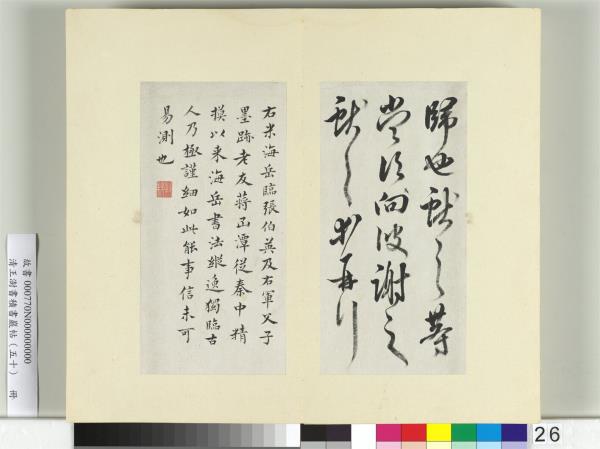 歸也獻之等
當須向彼謝之
獻之書再行
右米海岳臨張伯英及右軍父子
墨跡老友蔣函潭從秦中精
摸以來海岳書法縱逸獨臨古
人乃極謹細如此能事信未可
易測也
故書000770N000000000
清王澍書積書巖帖(五十) 冊
26